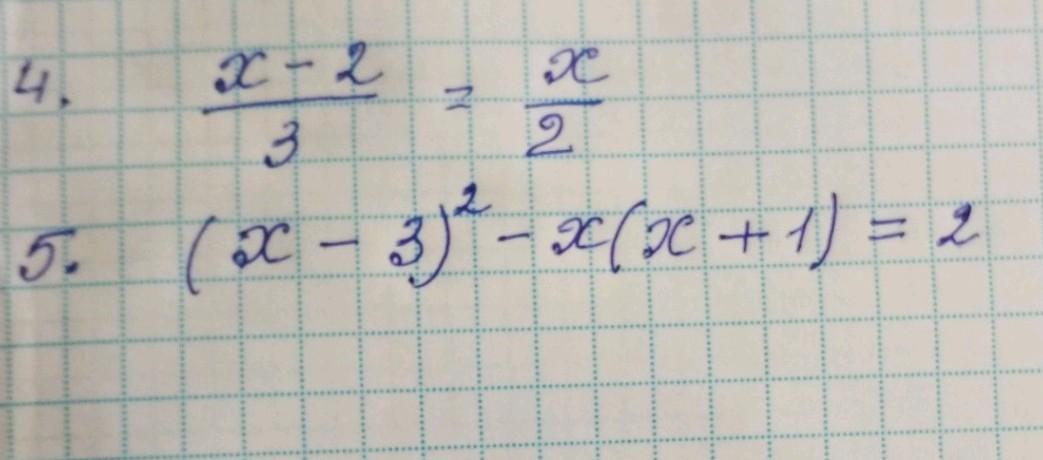 4. (x - 2)/3 = x/2
5. (x - 3)² - x(x + 1) = 2